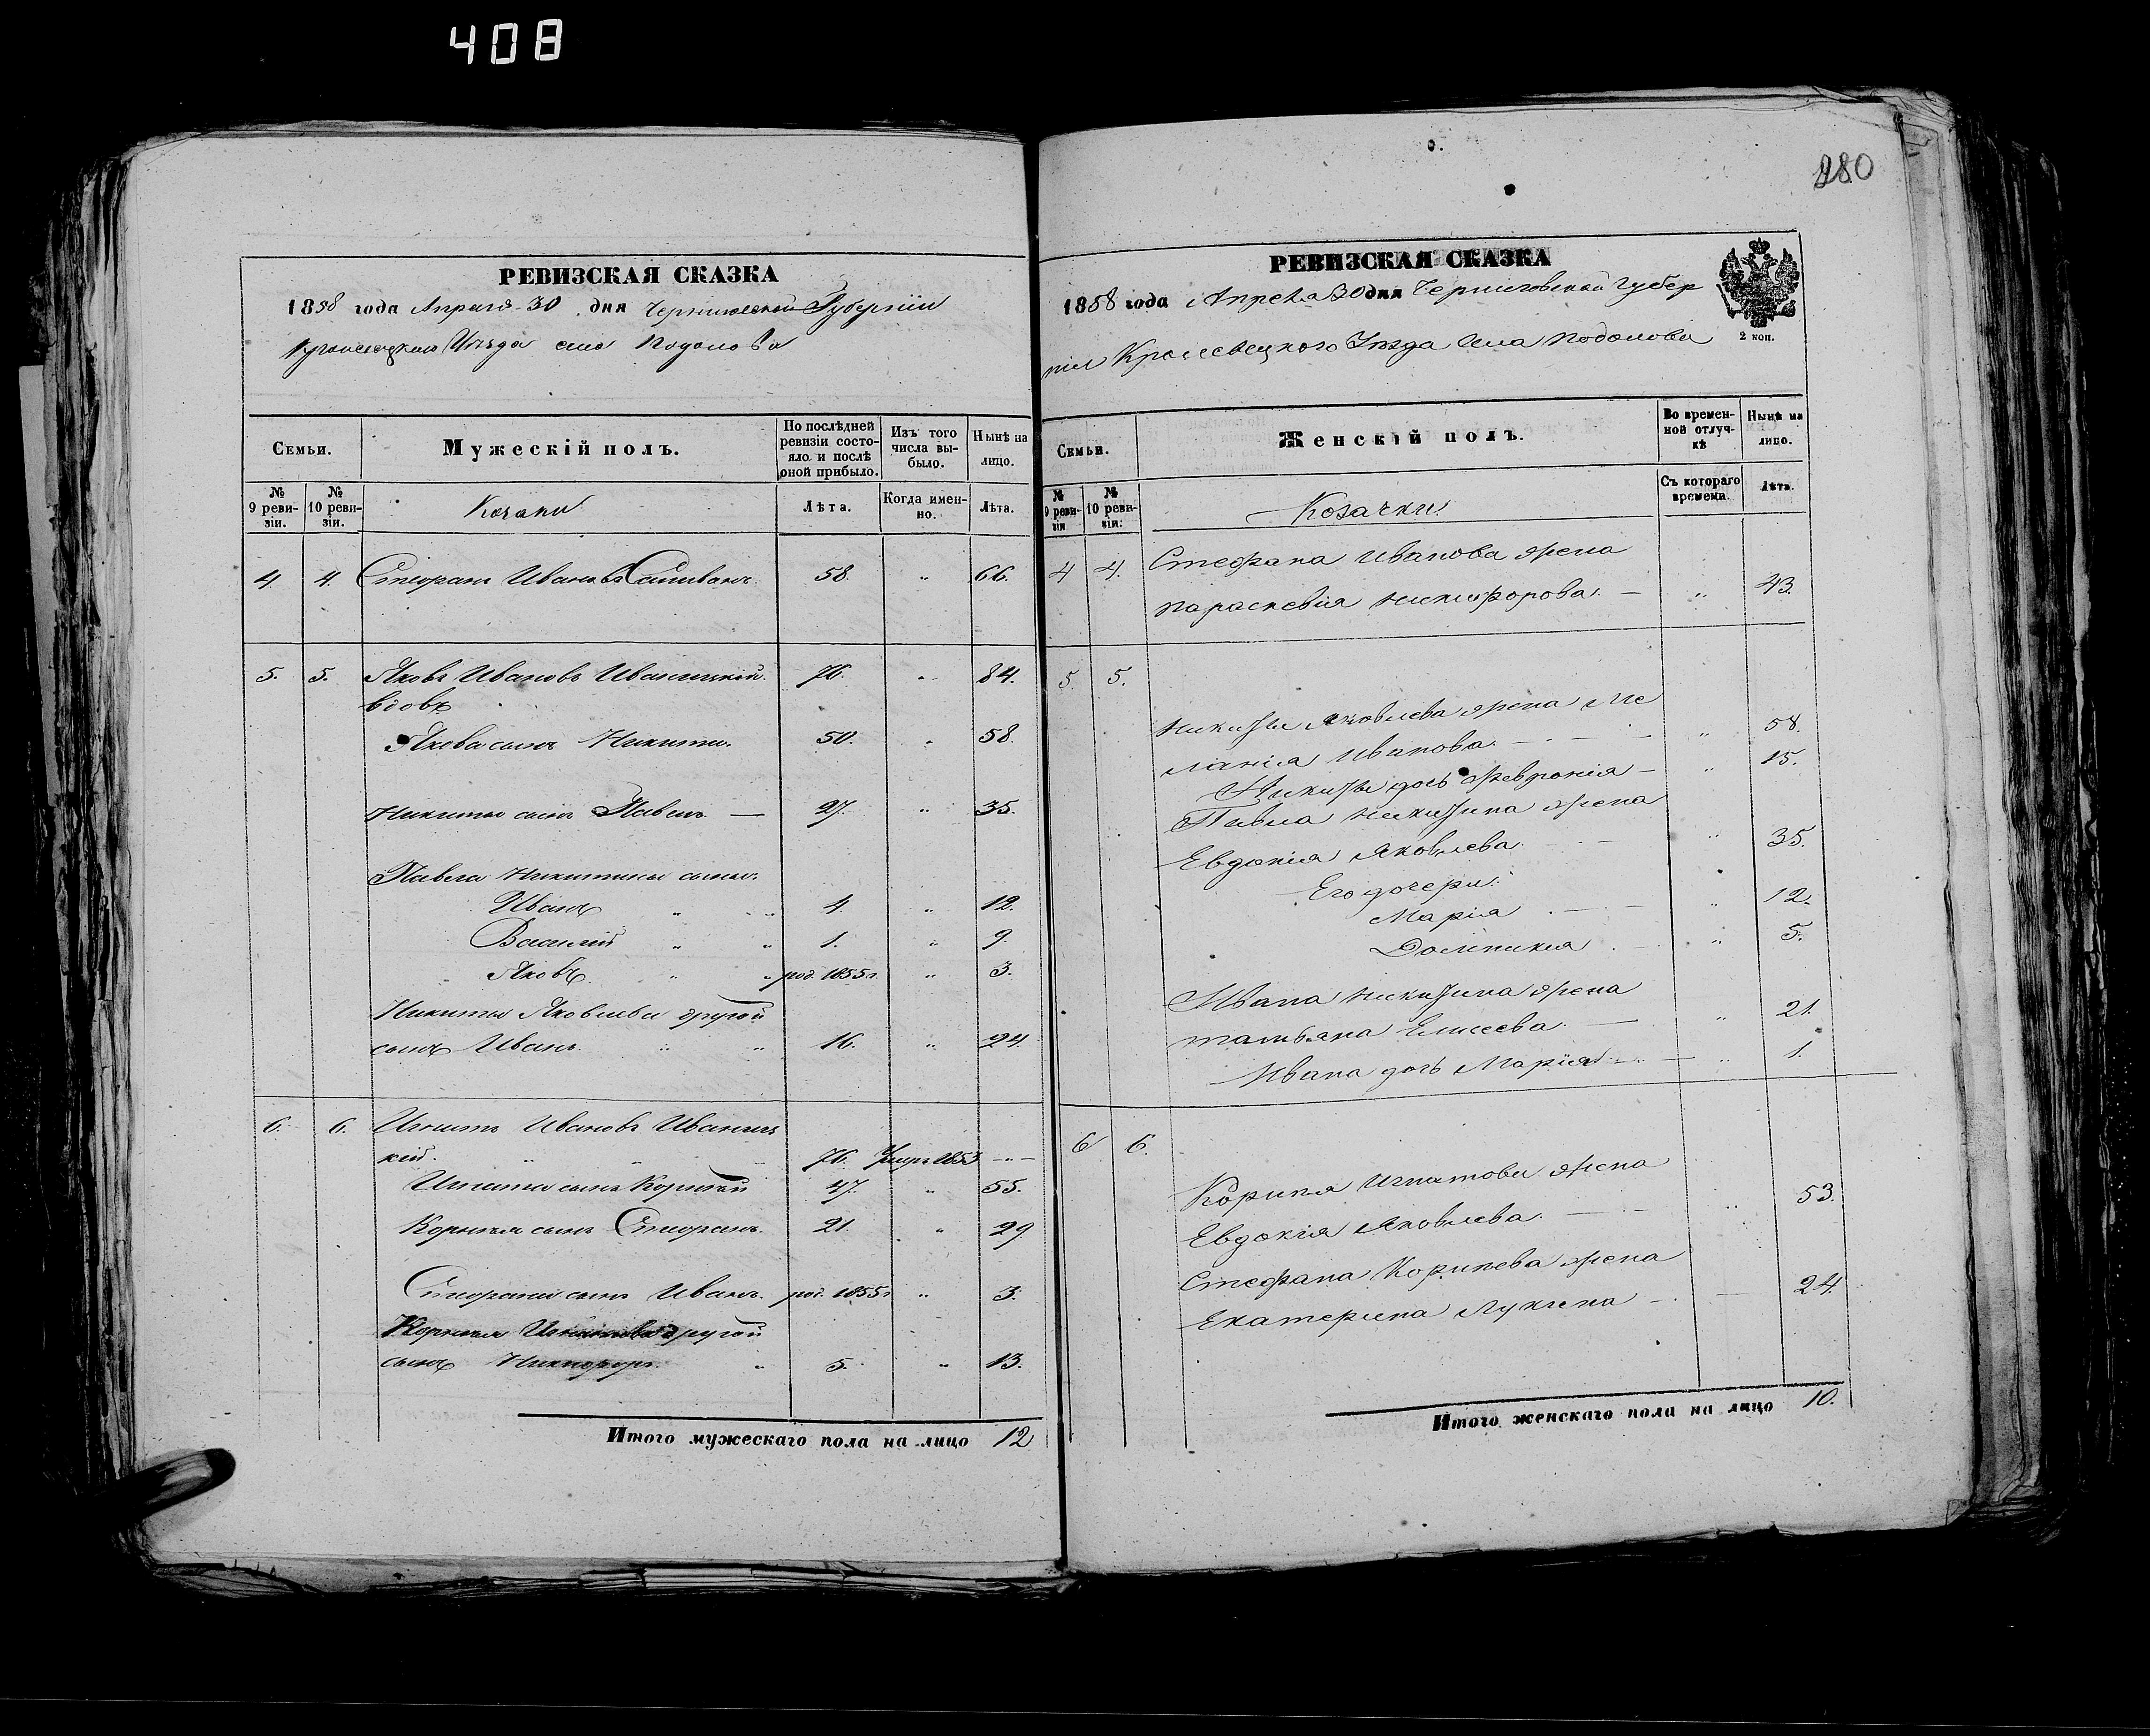 408
280
РЕВИЗСКАЯ СКАЗКА
1858 года Апреля 30 дня Черниговской Губернии
Кролевецкаго Уѣзда села Подолова
Семьи.
Мужескій полъ.
По послѣдней ревизіи состояло и послѣ оной прибыло.
Изъ того числа выбыло.
Нынѣ на лицо.
№ 9 ревизіи.
№ 10 ревизіи.
Козаки
Лѣта.
Когда именно.
Лѣта.
4. 4. Стефанъ Ивановъ 58. " 66.
5. 5. Яковъ Ивановъ Иваницкій. 76. " 84.
вдовъ
Якова сынъ Никита. 50. " 58.
Никиты сынъ Павелъ — 27. " 35.
Павла Никитина сыны
Иванъ " " 4. " 12.
Василій " " 1. " 9.
Яковъ. " " род. 1855 г. " 3.
Никиты Яковлева другой
сынъ Иванъ. " " 16. " 24.
6. 6. Игнатъ Ивановъ Иваниц
кій. " " " 76. Умеръ 1853 — " —
Игната сынъ Корнѣй 47. " 55.
Корнѣя сынъ Стефанъ. 21. " 29
Стефана сынъ Иванъ. род. 1855 г. " 3.
Корнѣя Игнатова другой
сынъ Никифоръ. " 5. " 13.
Итого мужескаго пола на лицо 12
РЕВИЗСКАЯ СКАЗКА
1858 года Апреля 30 дня Черниговской Губер
нии Кролевецкого Уѣзда Села Подолова
2 коп.
Семьи.
Женскій полъ.
Во временной отлучкѣ
Нынѣ на лицо.
№ 9 ревизіи
№ 10 ревизіи.
Козачки.
Съ котораго времени.
Лѣта.
4 4. Стефана Иванова жена
Параскевия Никифорова. — " 43.
5. 5.
Никиты Яковлева жена Ме
ланія Иванова. — " 58.
Никиты дочь Февронія — " 15.
Павла Никитина жена
Евдокія Яковлева. " 35.
Его дочери:
Марія " 12.
Домникия " 5.
Ивана Никитина жена
татьяна Елисеева. — " 21.
Ивана дочь Марія — " 1.
6 6.
Корнея Игнатова жена
Евдокія Яковлева. — " 53.
Стефана Корнеева жена
Екатерина Лукина — 24.
Итого женскаго пола на лицо 10.